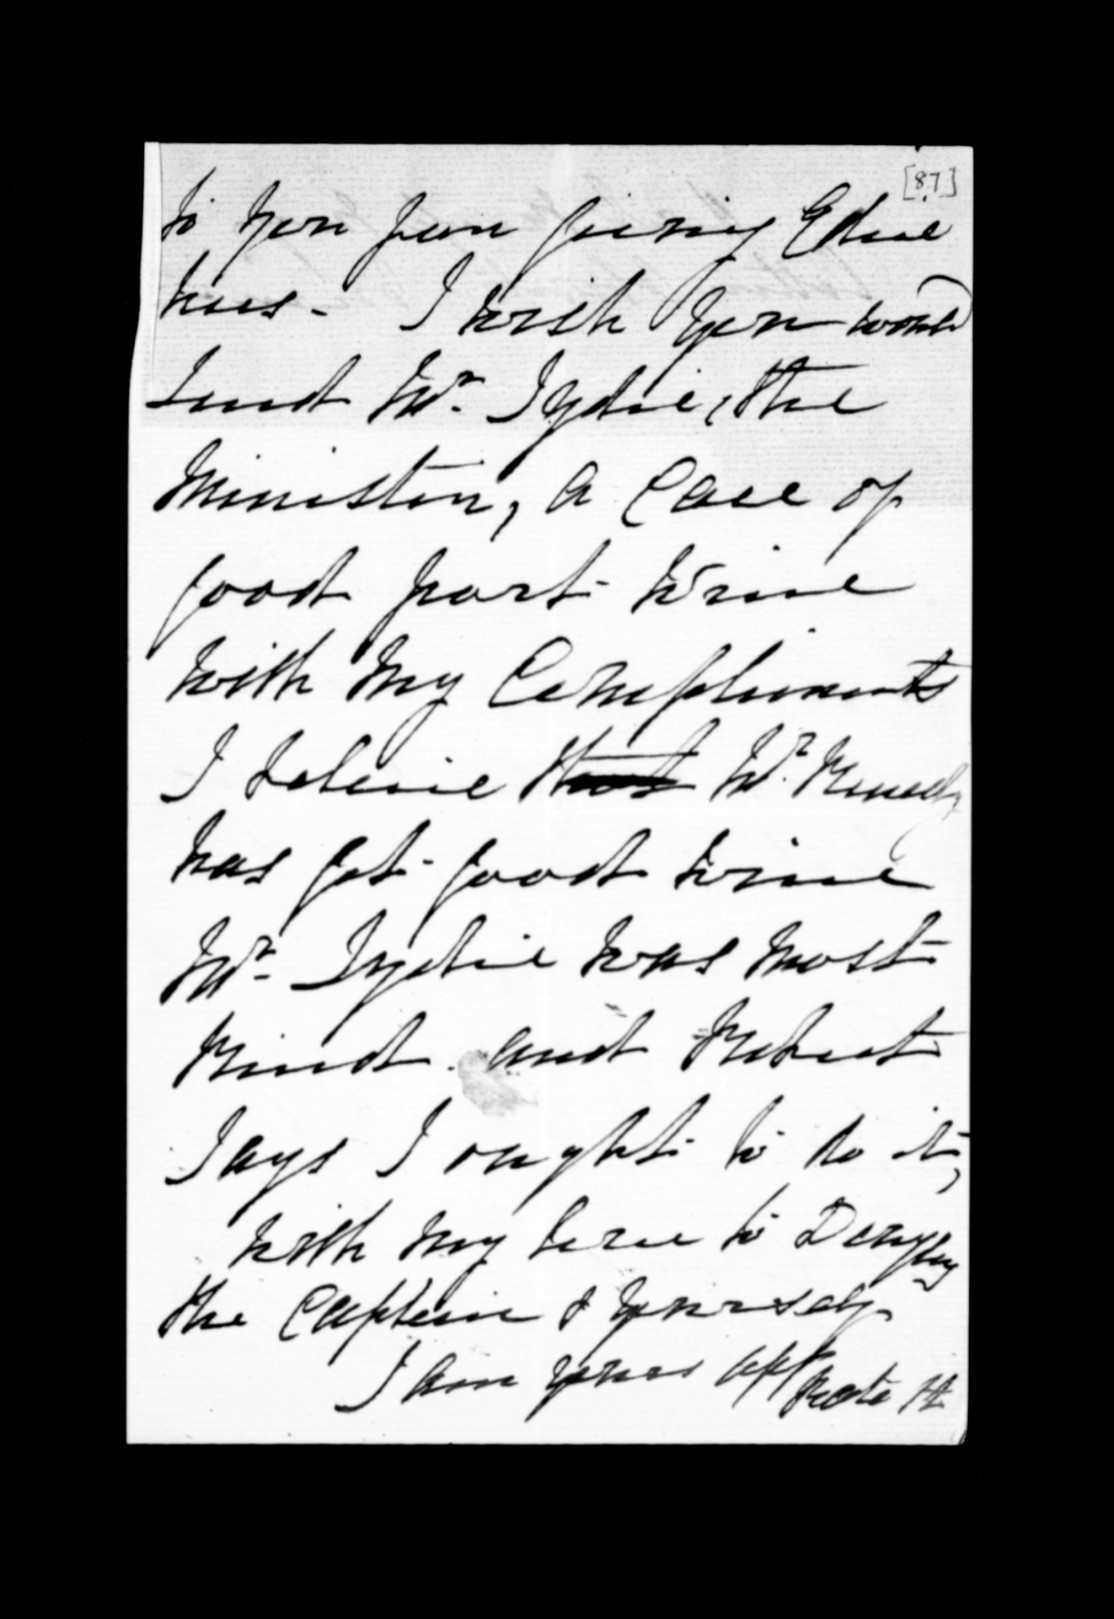 [87]
to you for giving Edie
hers. I wish you would
send Mr. Sydie, the
Minister, a Case of
good port wine
with my Compliments
I beleive that Mr. Kennedy
has got good wine
Mr. Sydie was most
kind and Robert
says I ought to do it,
with my love to
the Captain & yourself
I am yours aff
Kate H